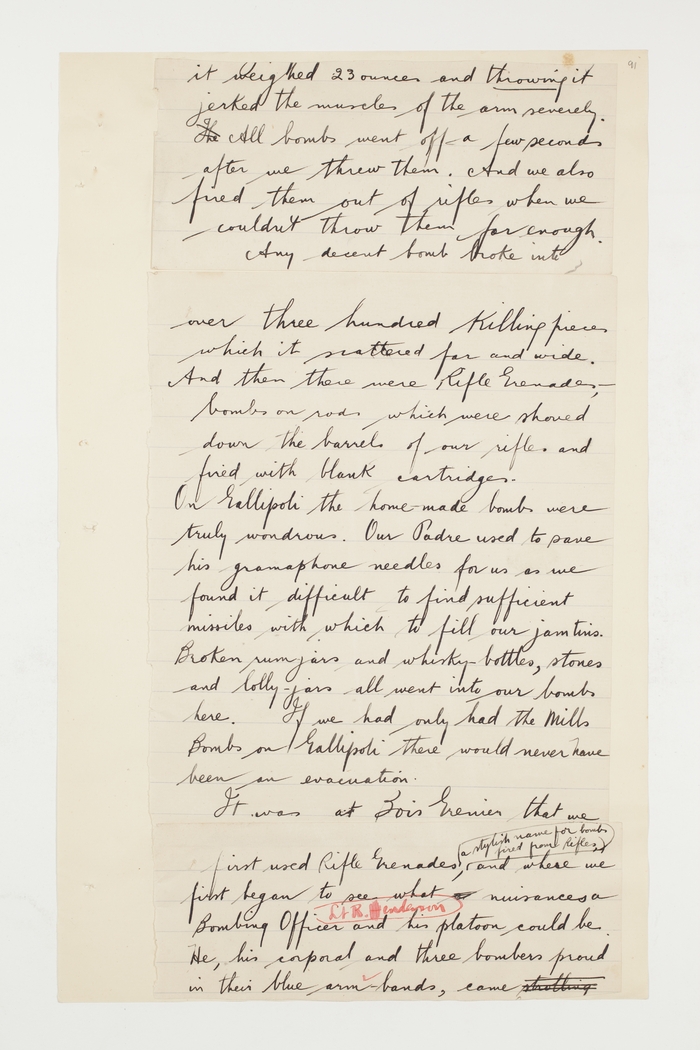 91
it weighed 23 ounces and throwing it
jerked the muscles of the arm severely.
The All bombs went off a few seconds
after we threw them. And we also
fired them out of rifles when we
couldn't throw them far enough.
Any decent bomb broke into
over three hundred killing pieces
which it scattered far and wide.
And then there were Rifle Grenades,-
bombs on rods which were shoved
down the barrels of our rifles and
fired with blank cartridges.
On Gallipoli the home-made bombs were
truly wondrous. Our Padre used to save
his gramaphone needles for us as we
found it difficult to find sufficient
missiles with which to fill our jam tins.
Broken rum jars and whisky-bottles, stones
and lolly-jars all went into our bombs
here. If we had only had the Mills
Bombs on Gallipoli there would never have
been an evacuation.
It was at Bois Grenier that we
(a stylish name for bombs
fired from Rifles,)
first used Rifle Grenades, and where we
first began to see what nuisances a
Lt R. Henderson
Bombing Officer and his platoon could be.
He, his corporal and three bombers proud
in their blue arm-bands, came strolling